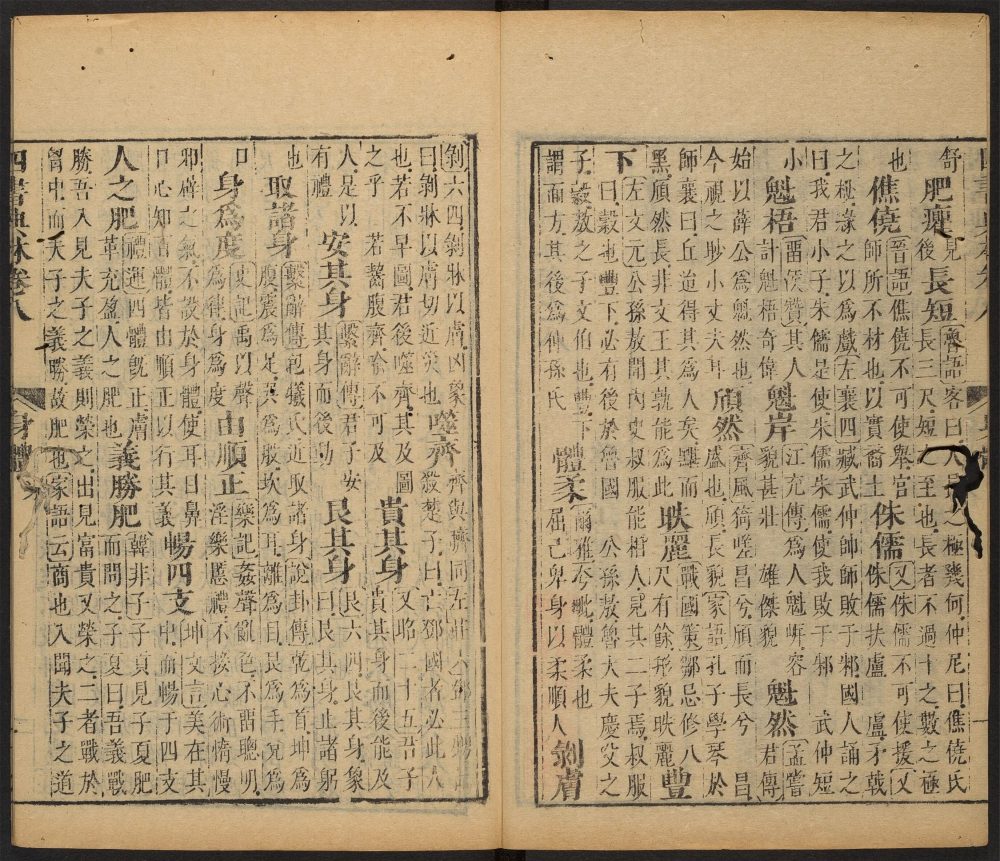 舒也
肥瘦
見後
長短
魯語客曰人長之極幾何仲尼曰僬僥氏
長三尺短之至也長者不過十之數之極
僬僥
晉語僬僥不可使舉官
師所不材也以實裔土
侏儒
又侏儒不可使援又
侏儒扶盧 盧矛戟
之柲緣之以爲戲左襄四臧武仲帥師敗于邾國人誦之
曰我君小子朱儒是使朱儒朱儒使我敗于邾 武仲短
小
魁梧
留侯贊其人
計魁梧奇偉
魁岸
江充傳爲人魁岸容
貌甚壯 雄傑貌
魁然
孟嘗
君傳
始以薛公爲魁然也
今視之眇小丈夫耳
頎然
齊風猗嗟昌兮頎而長兮 昌
盛也頎長貌家語孔子學琴於
師襄曰丘迨得其爲人矣黮而
黑頎然長非文王其孰能爲此
昳麗
戰國策鄒忌修八
尺有餘形貌昳麗
豐
下
左文元公孫敖聞內史叔服能相人見其二子焉叔服
曰穀也豐下必有後於魯國 公孫敖魯大夫慶父之
子穀敖之子文伯也豐下
謂面方其後爲仲孫氏
體柔
爾雅夸毗體柔也
屈己卑身以柔順人
剝膚
剝六四剝牀以膚凶象
曰剝牀以膚切近災也
噬齊
齊與臍同左莊六鄧三甥請
殺楚子曰亡鄧國者必此人
也若不早圖君後噬齊其及圖
之乎 若齧腹齊喻不可及
貴其身
又昭二十五君子
貴其身而後能及
人是以
有禮
安其身
繫辭傳君子安
其身而後動
艮其身
艮六四艮其身象
曰艮其身止諸躬
也
取諸身
繫辭傳包犧氏近取諸身說卦傳乾爲首坤爲
腹震爲足巽爲股坎爲耳離爲目艮爲手兌爲
口
身爲度
史記禹以聲
爲律身爲度
由順正
樂記姦聲亂色不留聰明
淫樂慝禮不接心術惰慢
邪辟之氣不設於身體使耳目鼻
口心知百體皆由順正以行其義
暢四支
坤文言美在其
中而暢于四支
人之肥
禮運四體既正膚
革充盈人之肥也
義勝肥
韓非子子貢見子夏肥
而問之子夏曰吾義戰
勝吾入見夫子之義則榮之出見富貴又榮之二者戰於
胸中而夫子之義勝故肥也家語云商也入聞夫子之道
四書典林卷八
身體